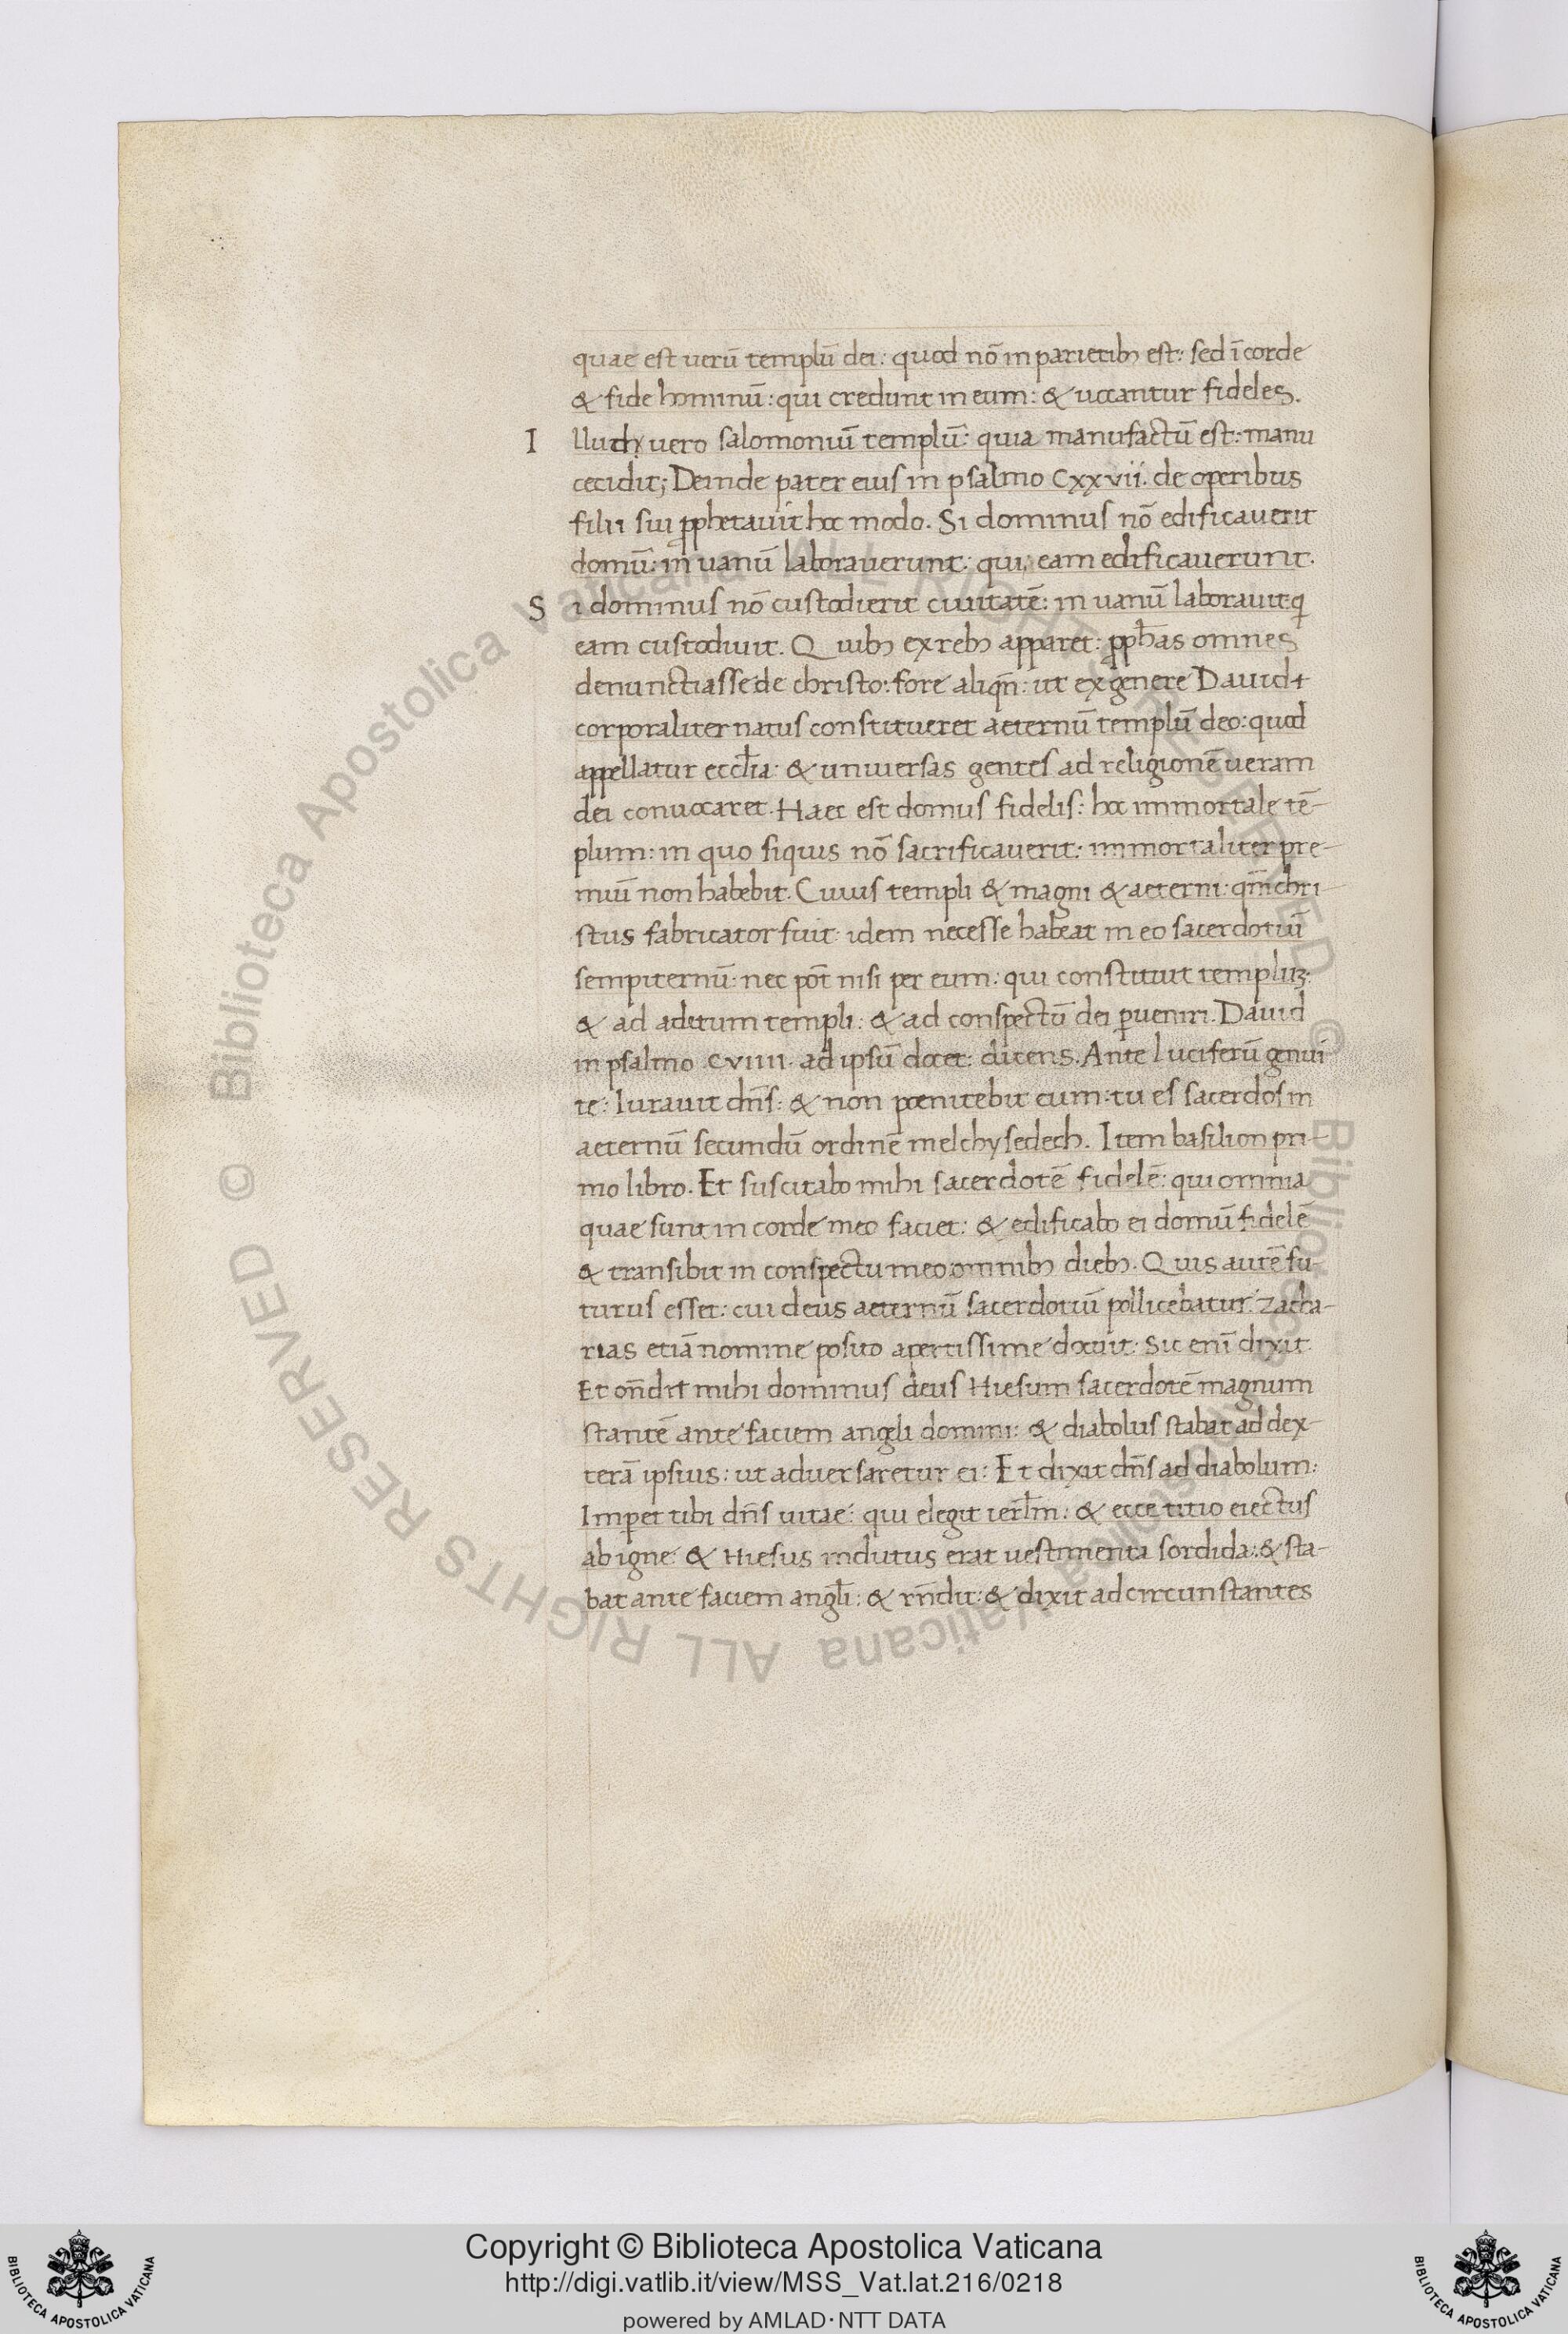 quae est uerū templū dei: quod nō in parietibꝫ est: sed ī corde
& fide hominū: qui credunt in eum: & uocantur fideles.
Illud uero salomoniū templū: quia manufactū est: manu
cecidit; Deinde pater eius in psalmo Cxxvii. de operibus
filii sui ꝓphetauit hoc modo. Si dominus nō edificauerit
domū: in uanū laborauerunt: qui eam edificauerunt.
Si dominus nō custodierit ciuitatē: in uanū laborauit: q
eam custodiuit. Quibꝫ ex rebꝫ apparet: ꝓphas omnes
denunctiasse de christo: fore aliqn̄: ut ex genere Dauid
corporaliter natus constitueret aeternū templū deo: quod
appellatur eccl̄ia: & uniuersas gentes ad religionē ueram
dei conuocaret. Haec est domus fidelis: hoc immortale tē-
plum: in quo siquis nō sacrificauerit: immortaliter pre-
miū non habebit. Cuius templi & magni & aeterni: qm̄ chri-
stus fabricator fuit: idem necesse habeat in eo sacerdotiū
sempiternū: nec pōt nisi per eum: qui constituit templuꝫ:
& ad aditum templi: & ad conspectū dei ꝑueniri. Dauid
in psalmo .cviiii. ad ipsū docet: dicens. Ante luciferū genui
te: Iurauit dn̄s: & non poenitebit eum: tu es sacerdos in
aeternū secundū ordinē melchysedech. Item basilion pri-
mo libro. Et suscitabo mihi sacerdotē fidelē: qui omnia
quae sunt in corde meo faciet: & edificabo ei domū fidelē
& transibit in conspectu meo omnibꝫ diebꝫ. Quis autē fu-
turus esset: cui deus aeternū sacerdotiū pollicebatur: zacha-
rias etiā nomine posito apertissime docuit: Sic enī dixit.
Et on̄dit mihi dominus deus Hiesum sacerdotē magnum
stantē ante faciem angeli domini: & diabolus stabat ad dex-
terā ipsius: ut aduersaretur ei: Et dixit dn̄s ad diabolum:
Imperet tibi dn̄s uitae: qui elegit ierl̄m: & ecce titio eiectus
ab igne: & Hiesus indutus erat uestimenta sordida: & sta-
bat ante faciem angl̄i: & rn̄dit: & dixit ad circunstantes
© Biblioteca Apostolica Vaticana ALL RIGHTS RESERVED © Biblioteca Apostolica Vaticana ALL RIGHTS RESERVED
Copyright © Biblioteca Apostolica Vaticana
http://digi.vatlib.it/view/MSS_Vat.lat.216/0218
powered by AMLAD·NTT DATA
BIBLIOTECA APOSTOLICA VATICANA
BIBLIOTECA APOSTOLICA VATICANA